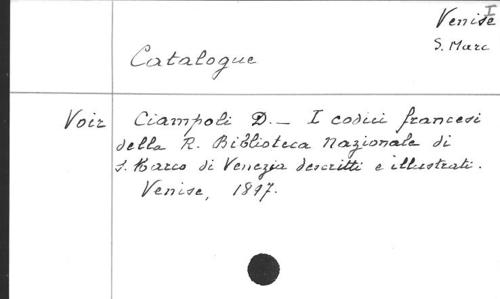 Venise I
S. Marc
Catalogue
Voir Ciampoli D. — I codici francesi
della R. Biblioteca Nazionale di
S. Marco di Venezia descritti e illustrati.
Venise, 1897.